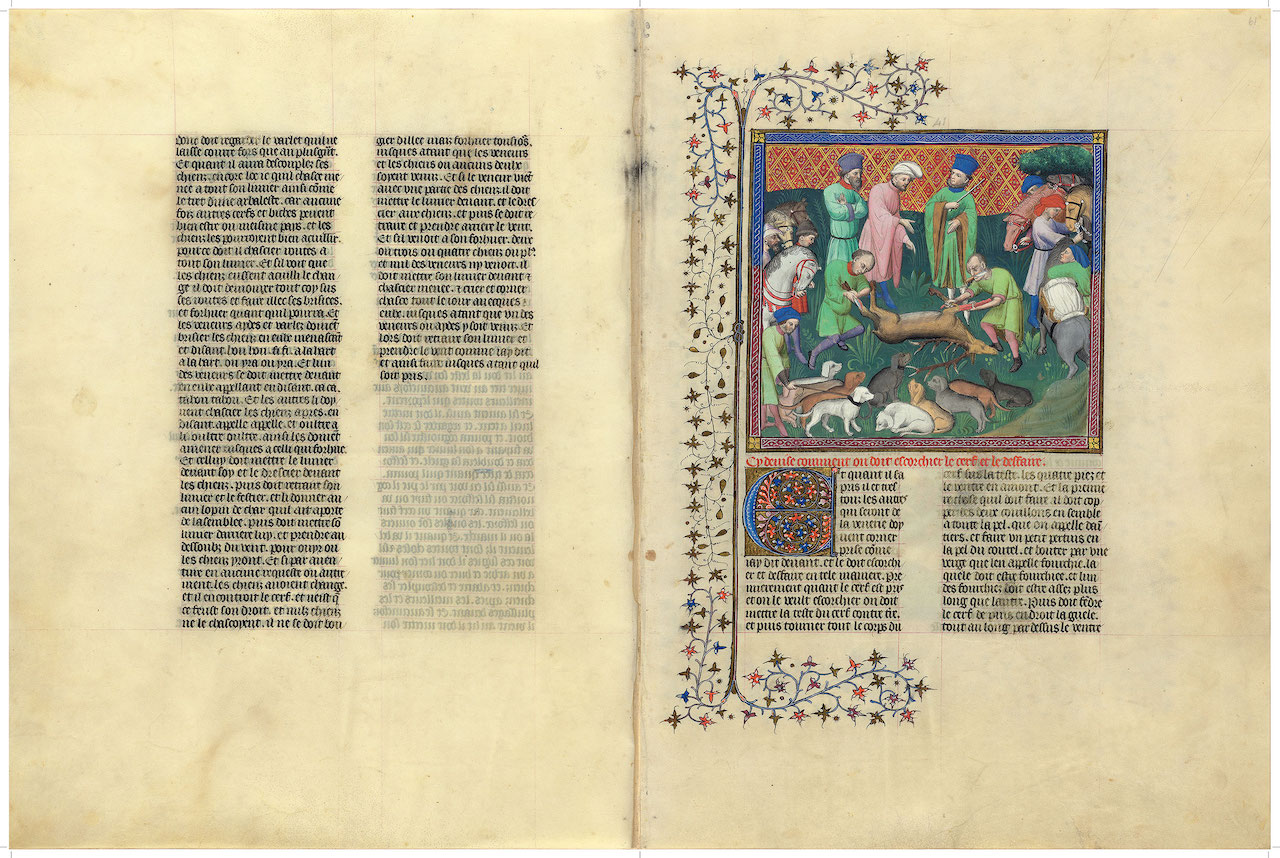 loing doit regarder le varlet qui lui
laisse courre fors que au plus grāt.
Et quant il aura descouple ses
chienz, encore lee ie quil chasce me
nee a tout son limier ainsi cōme
le tret dune arbaleste. car aucune
fois autres cerfs et biches peuent
bien estre ou meisme païs. et les
chienz les pourroyent bien acuillir.
pource doit il chascier routes a
tout son limier. Et sil voit que
les chienz eussent acuilli le chan
ge il doit demorger tout coy sus
ses routes et faire illec ses brisees.
et forhuer quant quil pourra. Et
les veneurs aydes et varlez doiuēt
brisier les chienz en eulz menassāt
et disant hou hou. fi. fi. a la hart
a la hart. ou yra ou yra. Et lun
des veneurs se doit mettre deuant
en eulz appellant en disant. ca ca.
tahou tahou. Et les autres li doy
uent chascier les chienz apres. en
disant. appelle appelle. et oultre a
li. oultre oultre. ainsi les doiuēt
amener iusques a celli qui forhue.
Et celluy doit mettre le limier
deuant soy et le drescier deuant
les chienz. Puis doit retraire son
limier et le festier. et li donner au
cun lopin de char quil ait aporte
de lasemblee. puis doit mettre sō
limier darriere luy. et prendre au
dessoubz du vent. pour ouyr ou
les chienz yront. Et si par auen
ture en aucune requeste ou autre
ment. les chienz auoient change.
et il encontroit le cerf. et neist q̄
ce feust son droit. et nulz chienz
ne le chascoyent. il ne se doit bou
gier dillec mais forhuer tousiōs.
iusques atant que les veneurs
et les chiens ou aucuns deulz
soyent venuz. Et si le veneur viēt
auec vne partie des chienz. il doit
mettre le limier deuant. et le dres
cier aux chienz. et puis se doit re
traire et prendre arriere le vent
Et sil venoit a son forhuer. deux
ou trois ou quatre chienz ou pl9.
et nul des veneurs ny venoit. il
doit mettre son limier deuant ⁊
chascier menee. ⁊ crier et corner
chasce tout le iour auecques
eulz. iusques atant que vn des
veneurs ou aydes y soit venuz. Et
lors doit retraire son limier et
prendre le vent comme iay dit
et ainsi faire iusques a tant quil
soit pris.
61
Cy deuise comment on doit escorchier le cerf et le deffaire.
Et quant il ēā
pris il et tres
touz les autrꝭ
qui seront de
la venerie doy
uent corner
prise cōme
iay dit deuant. et le doit escorchi
er et deffaire en tele maniere. Pre
mierement quant le cerf est pris
et on le veult escorchier on doit
mettre la teste du cerf contre t̄re.
et puis tourner tout le corps du
cerf sus la teste. les quatre piez et
le ventre en amont. Et la premie
re chose quil doit faire. il doit cop
per les deux couillons ensemble
a toute la pel. que on appelle daī
tiers. et faire vn petit pertuis en
la pel du coutel. et bouter par vne
verge que len appelle fourchie. la
quele doit estre fourchee. et lun
des fourchiez doit estre assez plus
long que lautre. Puis doit fēdre
le cerf de puis endroit la guele.
tout au long par dessus le ventre